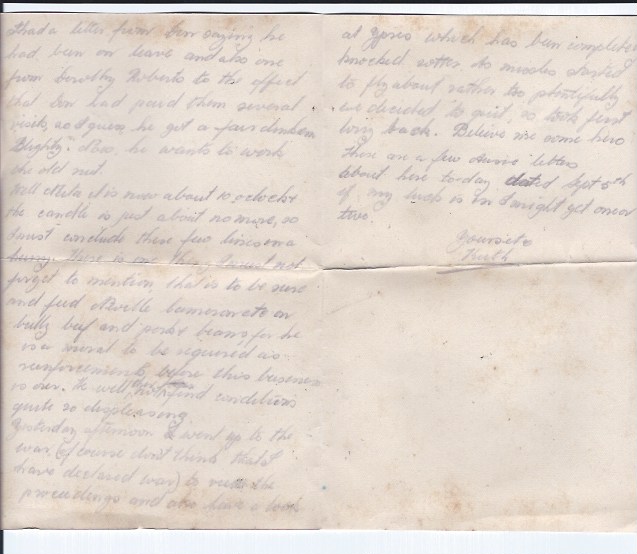 I had a letter from Don saying he
had been on leave and also one
from Dorothy Roberts to the effect
that Don had paid them several
visits, so I guess he got a fair dinkum
Blighty. Now he wants to work
the old nut.
Well it is now about 10 o'clock &
the candle is just about no more, so
must conclude these few lines in a
hurry. There is one thing I must not
forget to mention, that is to be sure
and feed Neville on
bully beef and pork & beans for he
is a moral to be required as
reinforcements before this business
is over. He will then find conditions
quite so displeasing.
Yesterday afternoon I went up to the
war (of course don't think that I
have declared war) to the
proceedings and also have a look
at Ypres which has been completely
knocked. As missles started
to fly about rather too plentifully
we decided to quit, so took first
back. Believe me some hero
There are a few letters
about here to-day dated Sept 5th
if my luck is in I might get one or
two.
Yours etc
Keith